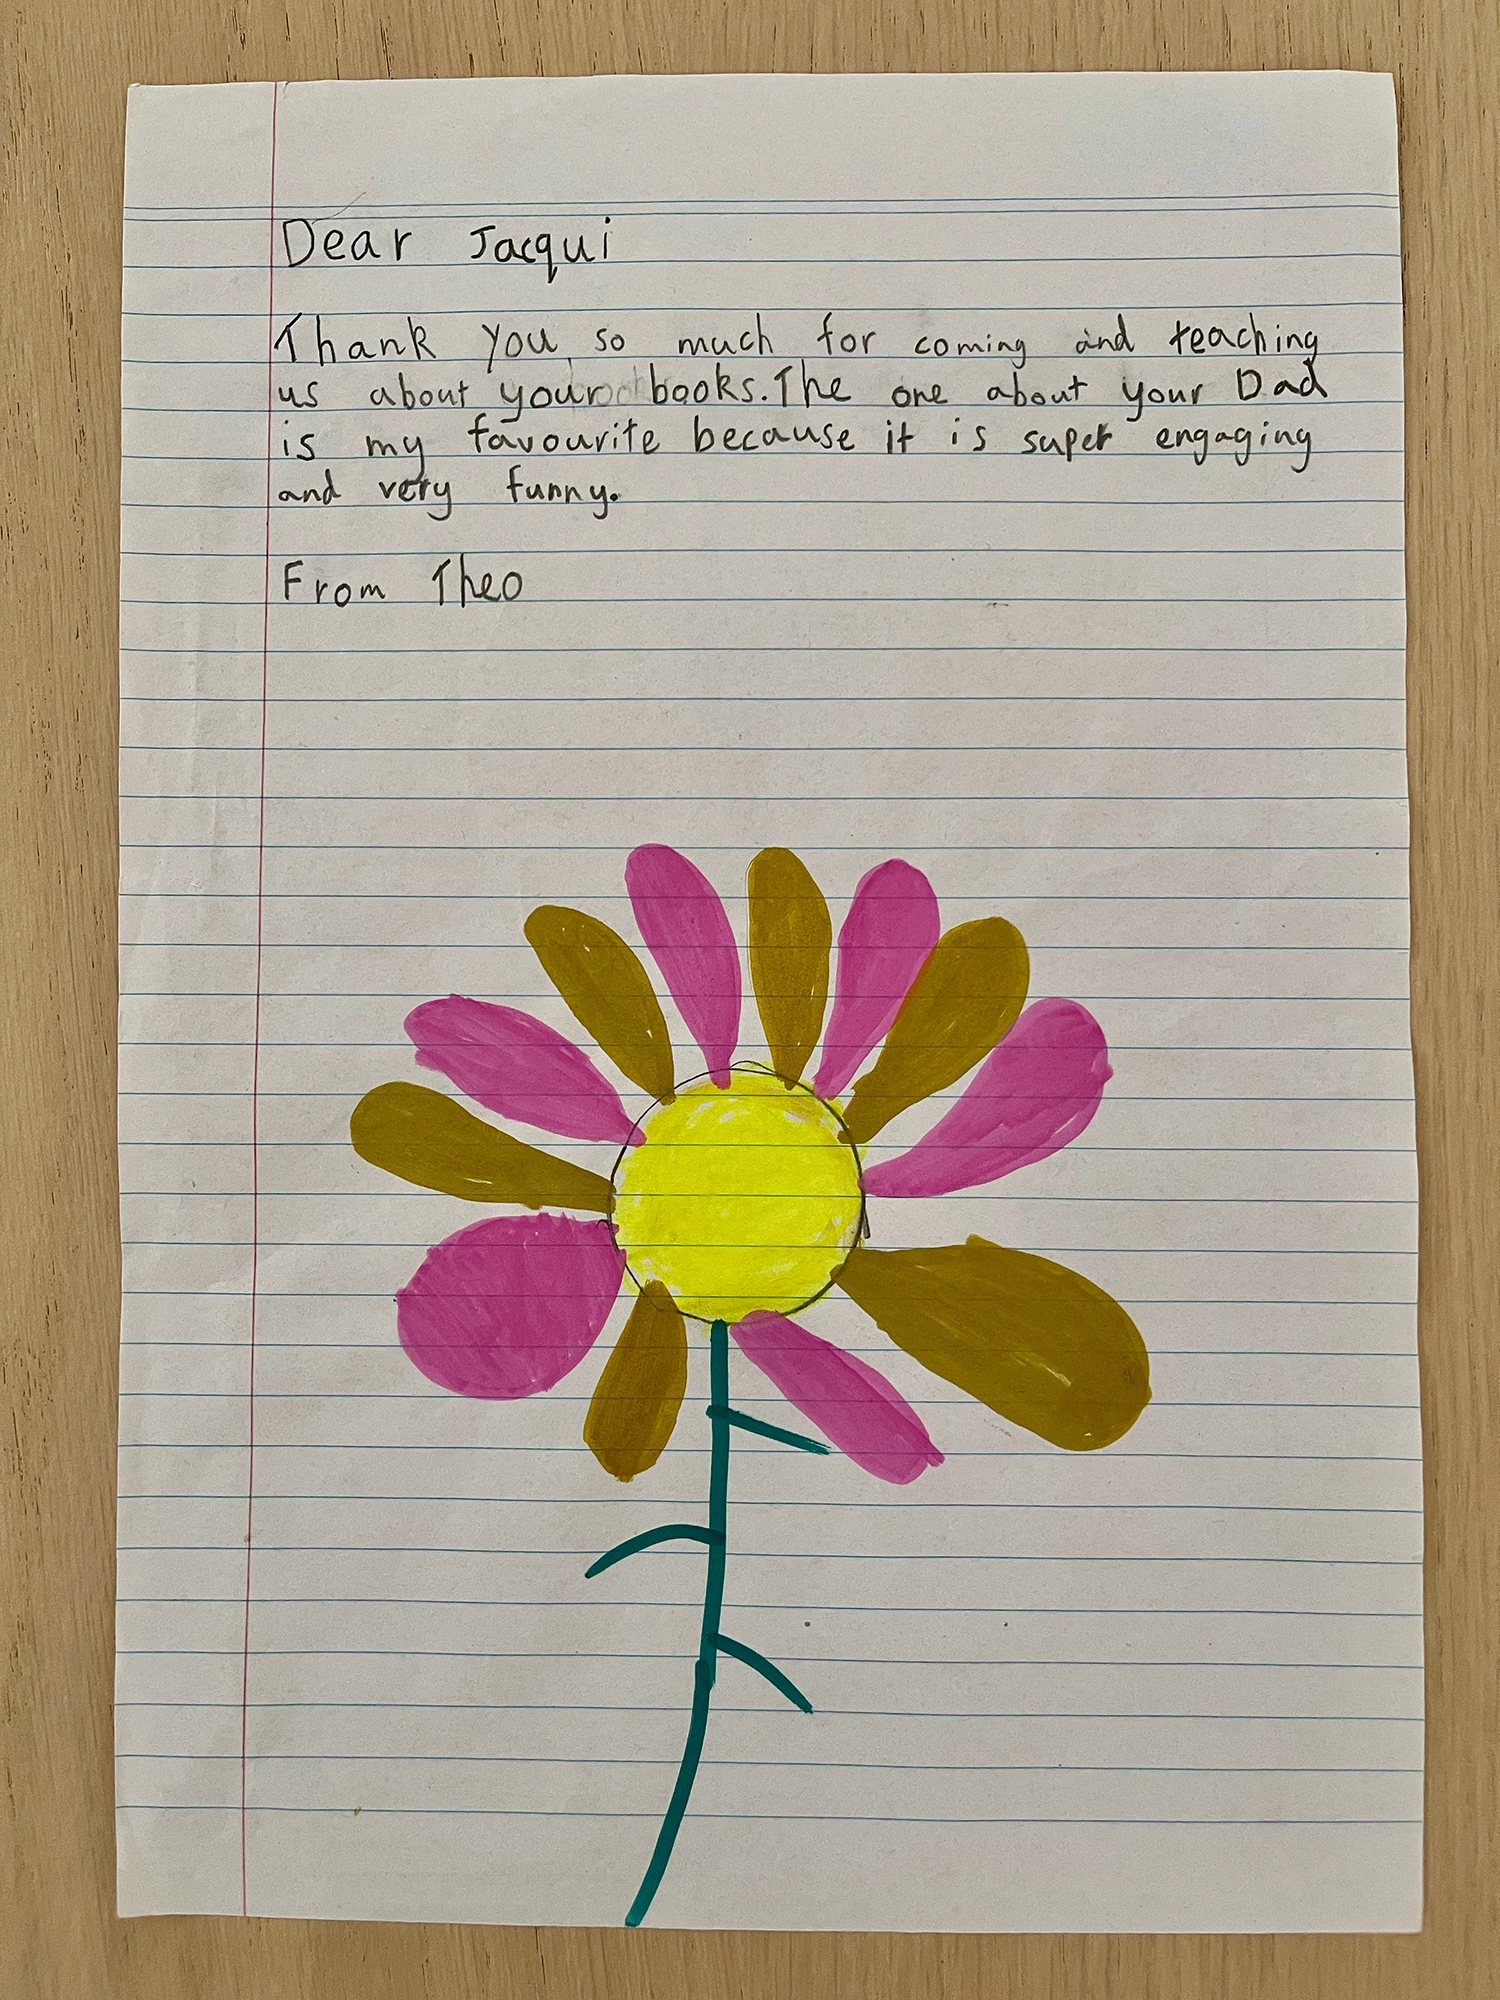 Dear Jacqui
Thank you so much for coming and teaching
us about your books. The one about your Dad
is my favourite because it is super engaging
and very funny.
From Theo